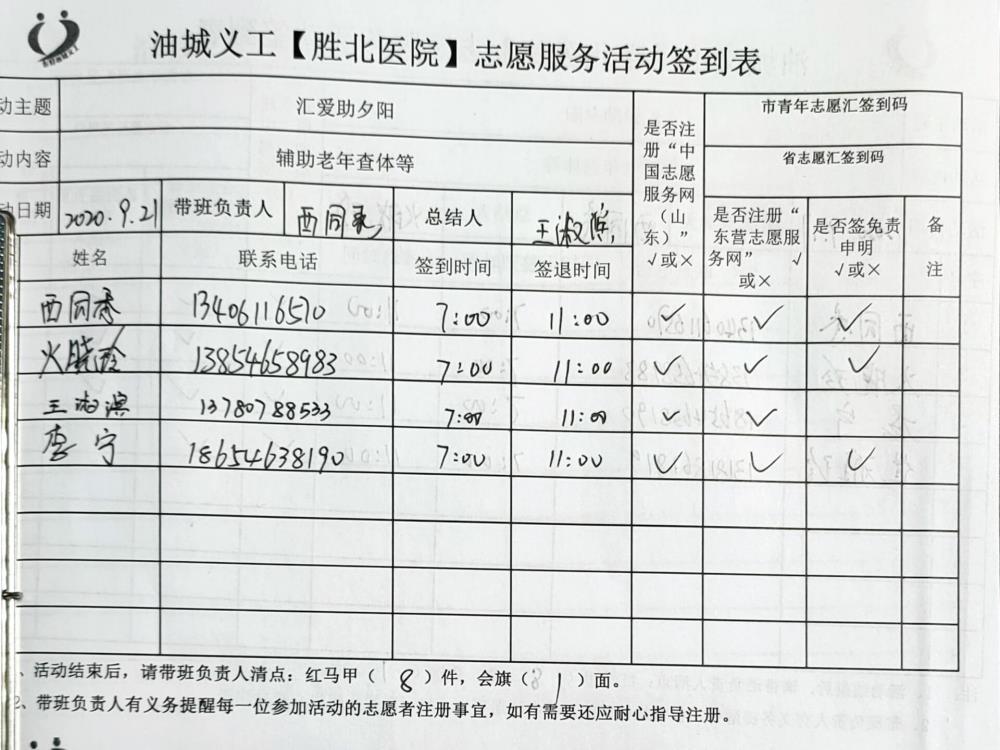 油城义工【胜北医院】志愿服务活动签到表
动主题 汇爱助夕阳 是否注册“中国志愿服务网（山东）” √或× 市青年志愿汇签到码
动内容 辅助老年查体等 省志愿汇签到码
动日期 2020.9.21 带班负责人 西同秀 总结人 王淑滨 是否注册“东营志愿服务网” √或× 是否签免责申明 √或× 备注
姓名 联系电话 签到时间 签退时间
西同秀 13406116570 7:00 11:00 ✓ ✓ ✓
火晓玲 13854658983 7:00 11:00 ✓ ✓ ✓
王淑滨 13780788533 7:00 11:00 ✓ ✓
李宁 18654638190 7:00 11:00 ✓ ✓ ✓
、活动结束后，请带班负责人清点：红马甲（ 8 ）件，会旗（ 1 ）面。
2、带班负责人有义务提醒每一位参加活动的志愿者注册事宜，如有需要还应耐心指导注册。